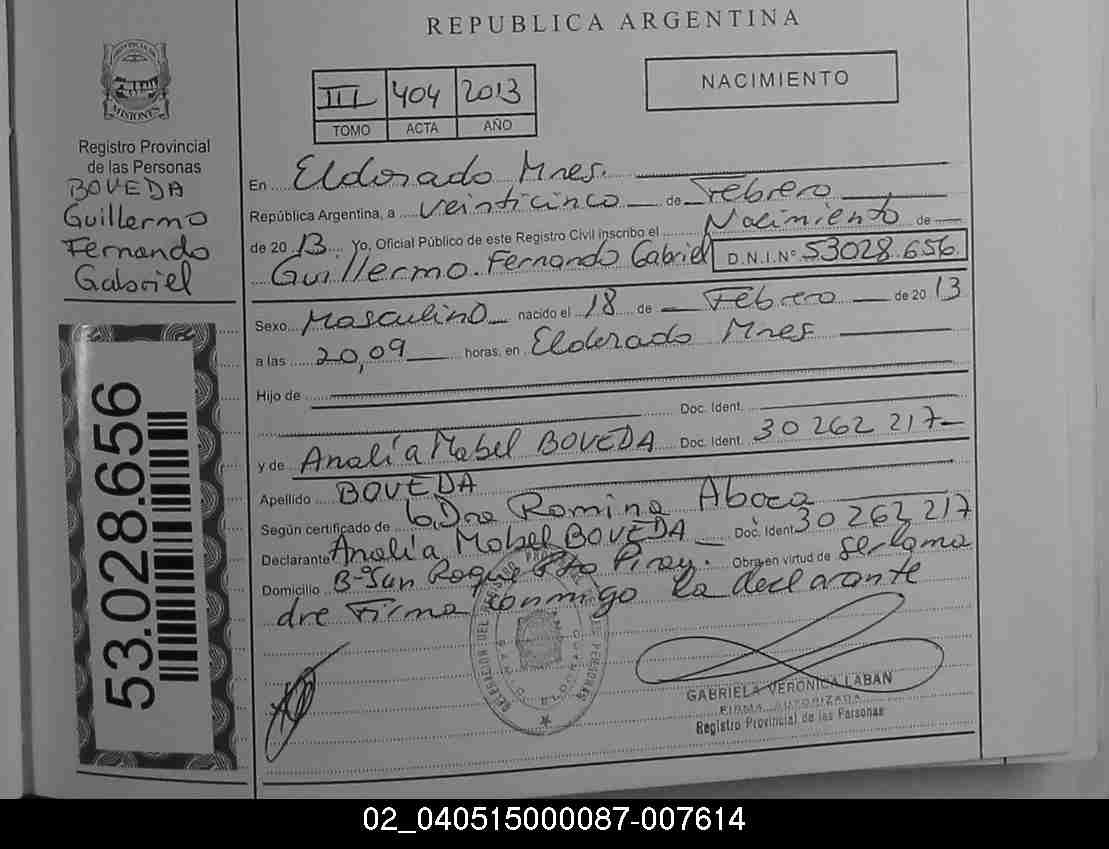 REPUBLICA ARGENTINA
MISIONES
Registro Provincial
de las Personas
BOVEDA
Guillermo
Fernando
Gabriel
53.028.656
III 404 2013
TOMO ACTA AÑO
NACIMIENTO
En Eldorado Mnes.
República Argentina, a veinticinco de Febrero
de 20 13 Yo, Oficial Público de este Registro Civil inscribo el Nacimiento de
Guillermo Fernando Gabriel D.N.I.Nº 53028.656.
Sexo Masculino nacido el 18 de Febrero de 20 13
a las 20,09 horas, en Eldorado Mnes
Hijo de
Doc. Ident.
y de Analía Mabel BOVEDA Doc. Ident. 30 262 217
Apellido BOVEDA
Según certificado de la Dra Romina
Declarante Analía Mabel BOVEDA Doc. Ident 30 262 217
Domicilio B- San Roque Pto Piray. Obra en virtud de ser la ma
dre Firma conmigo la declarante
GABRIELA VERONICA LABAN
FIRMA AUTORIZADA
Registro Provincial de las Personas
02_040515000087-007614